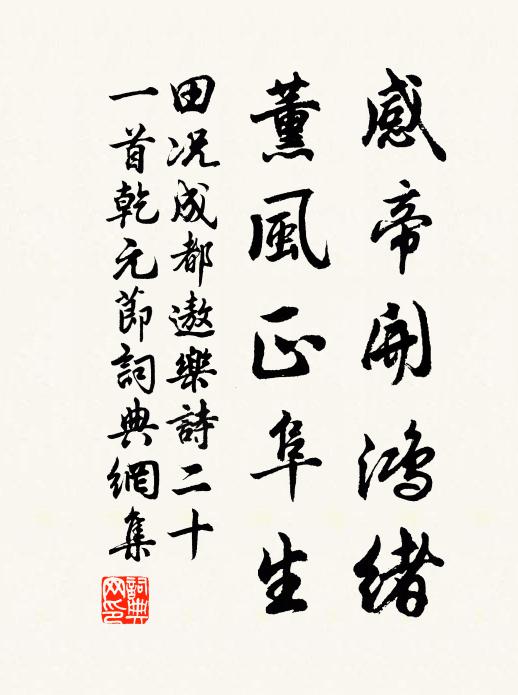 感帝開鴻緒
薰風正阜生
田況成都遨樂詩二十
一首乾元節詞典網集
詞典网印